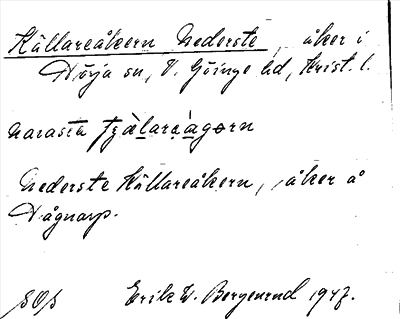 Källareåkern Nederste, åker i
Nörja sn, V. Göinge hd, Krist. l.
narasta
Nederste Källareåkern, åker å
Vågnarp.
SOS Erik W. Bergenrud 1947.